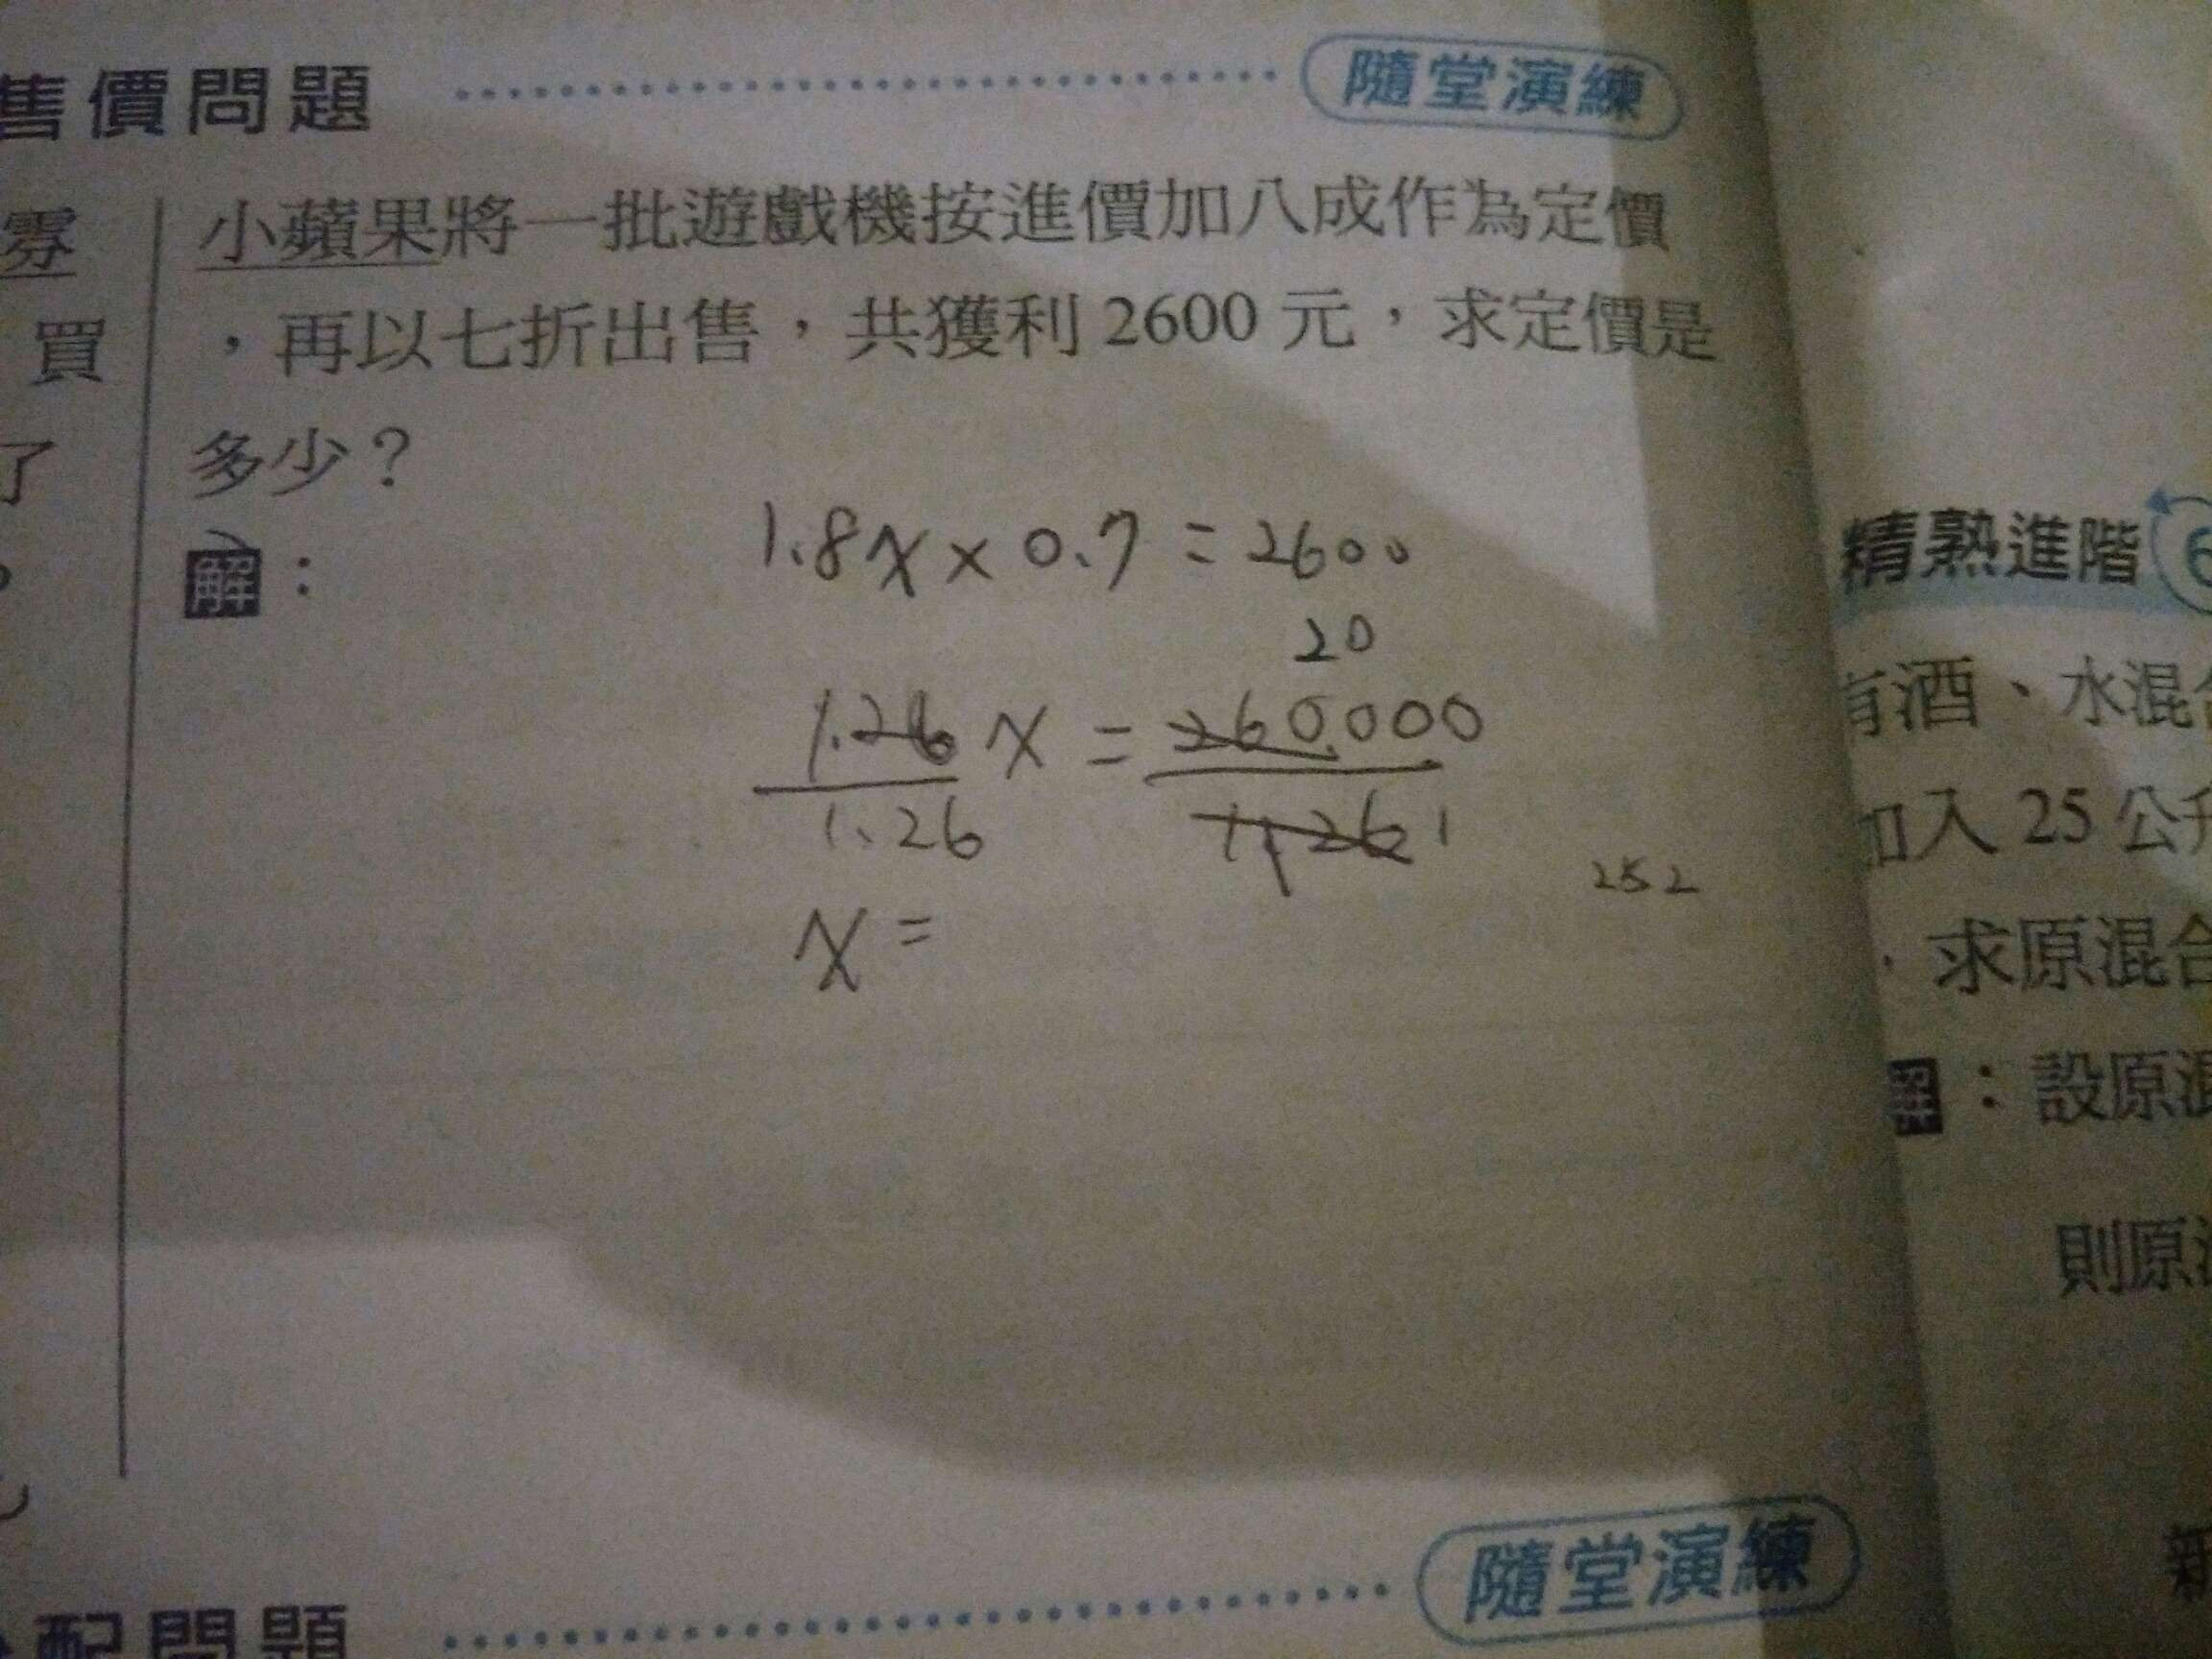 售價問題 隨堂演練
雰
買
了
小蘋果將一批遊戲機按進價加八成作為定價
，再以七折出售，共獲利 2600 元，求定價是
多少？
解：
1.8x × 0.7 = 2600
20
1.26 x = 260000
1.26 1.26 1
252
x =
精熟進階 6
有酒、水混合
加入 25 公升
，求原混合
解：設原混
則原混
新
配問題 隨堂演練